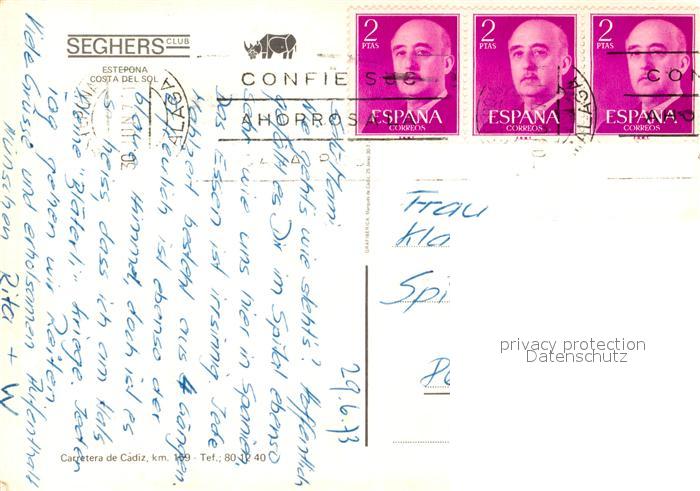 SEGHERS CLUB
ESTEPONA
COSTA DEL SOL
CONFIE SUS
AHORROS A LA
MALAGA
2
PTAS
ESPAÑA
CORREOS
2
PTAS
ESPAÑA
CORREOS
2
PTAS
ESPAÑA
CORREOS
MALAGA
29.6.73
wie gehts wie stehts? Hoffentlich
gefällt es Dir im Spital ebenso
gut wie uns hier in Spanien.
Das Essen ist irrsinnig. Jede
besteht aus 4 Gängen.
ist ebenso der
Himmel, doch ist es
so heiss, dass ich am Hals
kleine "Bläterli" kriege. Jeden
Tag gehen wir Reiten
Viele Grüsse und erholsamen Aufenthalt
wünschen Rita + W
Frau
Kla
Spi
privacy protection
Datenschutz
Carretera de Cádiz, km. 169 - Tef.; 80 12 40